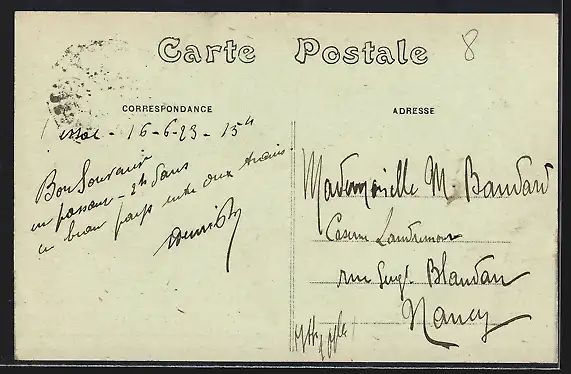 Carte Postale
8
CORRESPONDANCE
ADRESSE
16-6-23 - 15h
Bon Souvenir
en passant - 2h dans
ce beau pays entre deux trains.
Mademoiselle M. Baudard
Caserne Landremont
rue Sergt Blandan
Nancy